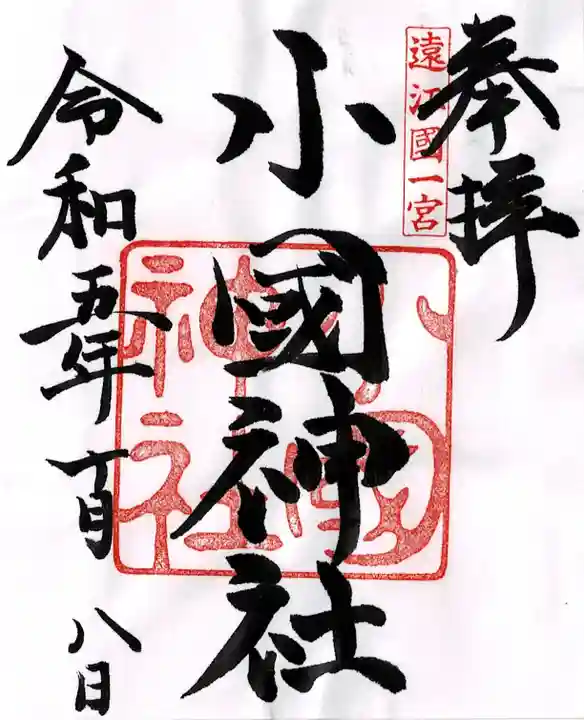 奉拝
遠江國一宮
小國神社
小國神社
令和五年 八日